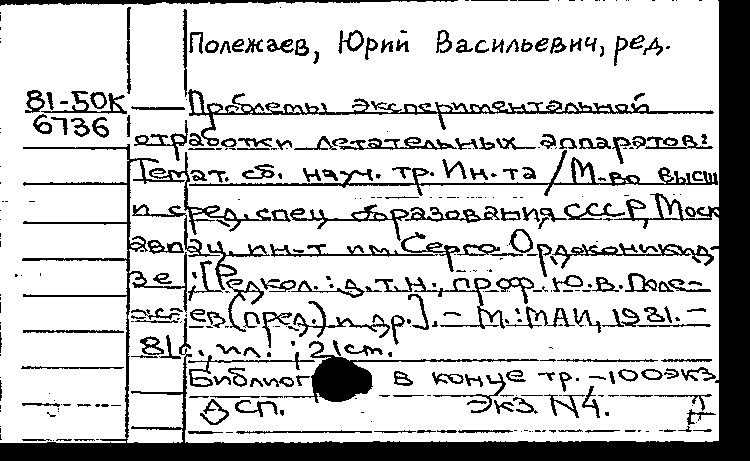 Полежаев, Юрий Васильевич, ред.
81-50К
6736
Проблемы экспериментальной
отработки летательных аппаратов:
Темат. сб. науч. тр. Ин-та / М-во высш
и сред. спец. образования СССР, Моск
авиац. ин-т им. Серго Орджоникид-
зе ; [Редкол.: д.т.н., проф. Ю.В. Поле-
жаев (пред.) и др.]. - М.: МАИ, 1981. -
81с., ил. ; 21см.
Библиог в конце тр. - 100экз.
ДСП. Экз. N4.